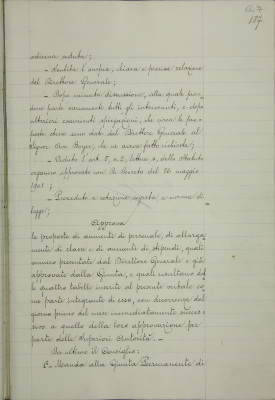 187
odierna seduta;
- Sentita l'ampia, chiara e precisa relazione
del Direttore Generale;
- Dopo minuta discussione, alla quale pren-
dono parte vivamente tutti gli intervenuti, e dopo
ulteriori esaurienti spiegazioni, che circa le pro-
poste stesse sono date dal Direttore Generale al
Signor Avv. Berger, che ne aveva fatto richiesta;
- Veduto l'art. 5, n. 2, lettera a, dello Statuto
organico approvato con R. Decreto del 26 maggio
1901;
- Proceduto a votazione segreta a norma di
legge;
Approva
le proposte di aumenti di personale, di allarga-
mento di classe e di aumenti di stipendi, quali
vennero presentate dal Direttore Generale e già
approvate dalla Giunta, e quali risultano dal-
le quattro tabelle inserite al presente verbale co-
me parte integrante di esso, con decorrenza dal
giorno primo del mese immediatamente succes-
sivo a quello della loro approvazione per
parte delle Superiori Autorità.
Da ultimo il Consiglio:
Manda alla Giunta Permanente di